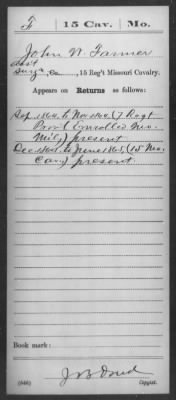 F 15 Cav. Mo.
John W. Farmer
Asst
Surgn, Co. , 15 Reg't Missouri Cavalry.
Appears on Returns as follows:
Sep. 1864 to Nov 1864 (7 Regt
Prov'l Enrolled Mo.
Mil) present
Dec. 1864 to June 1865, (15 Mo.
Cav) present.
Book mark:
J B
(646) Copyist.